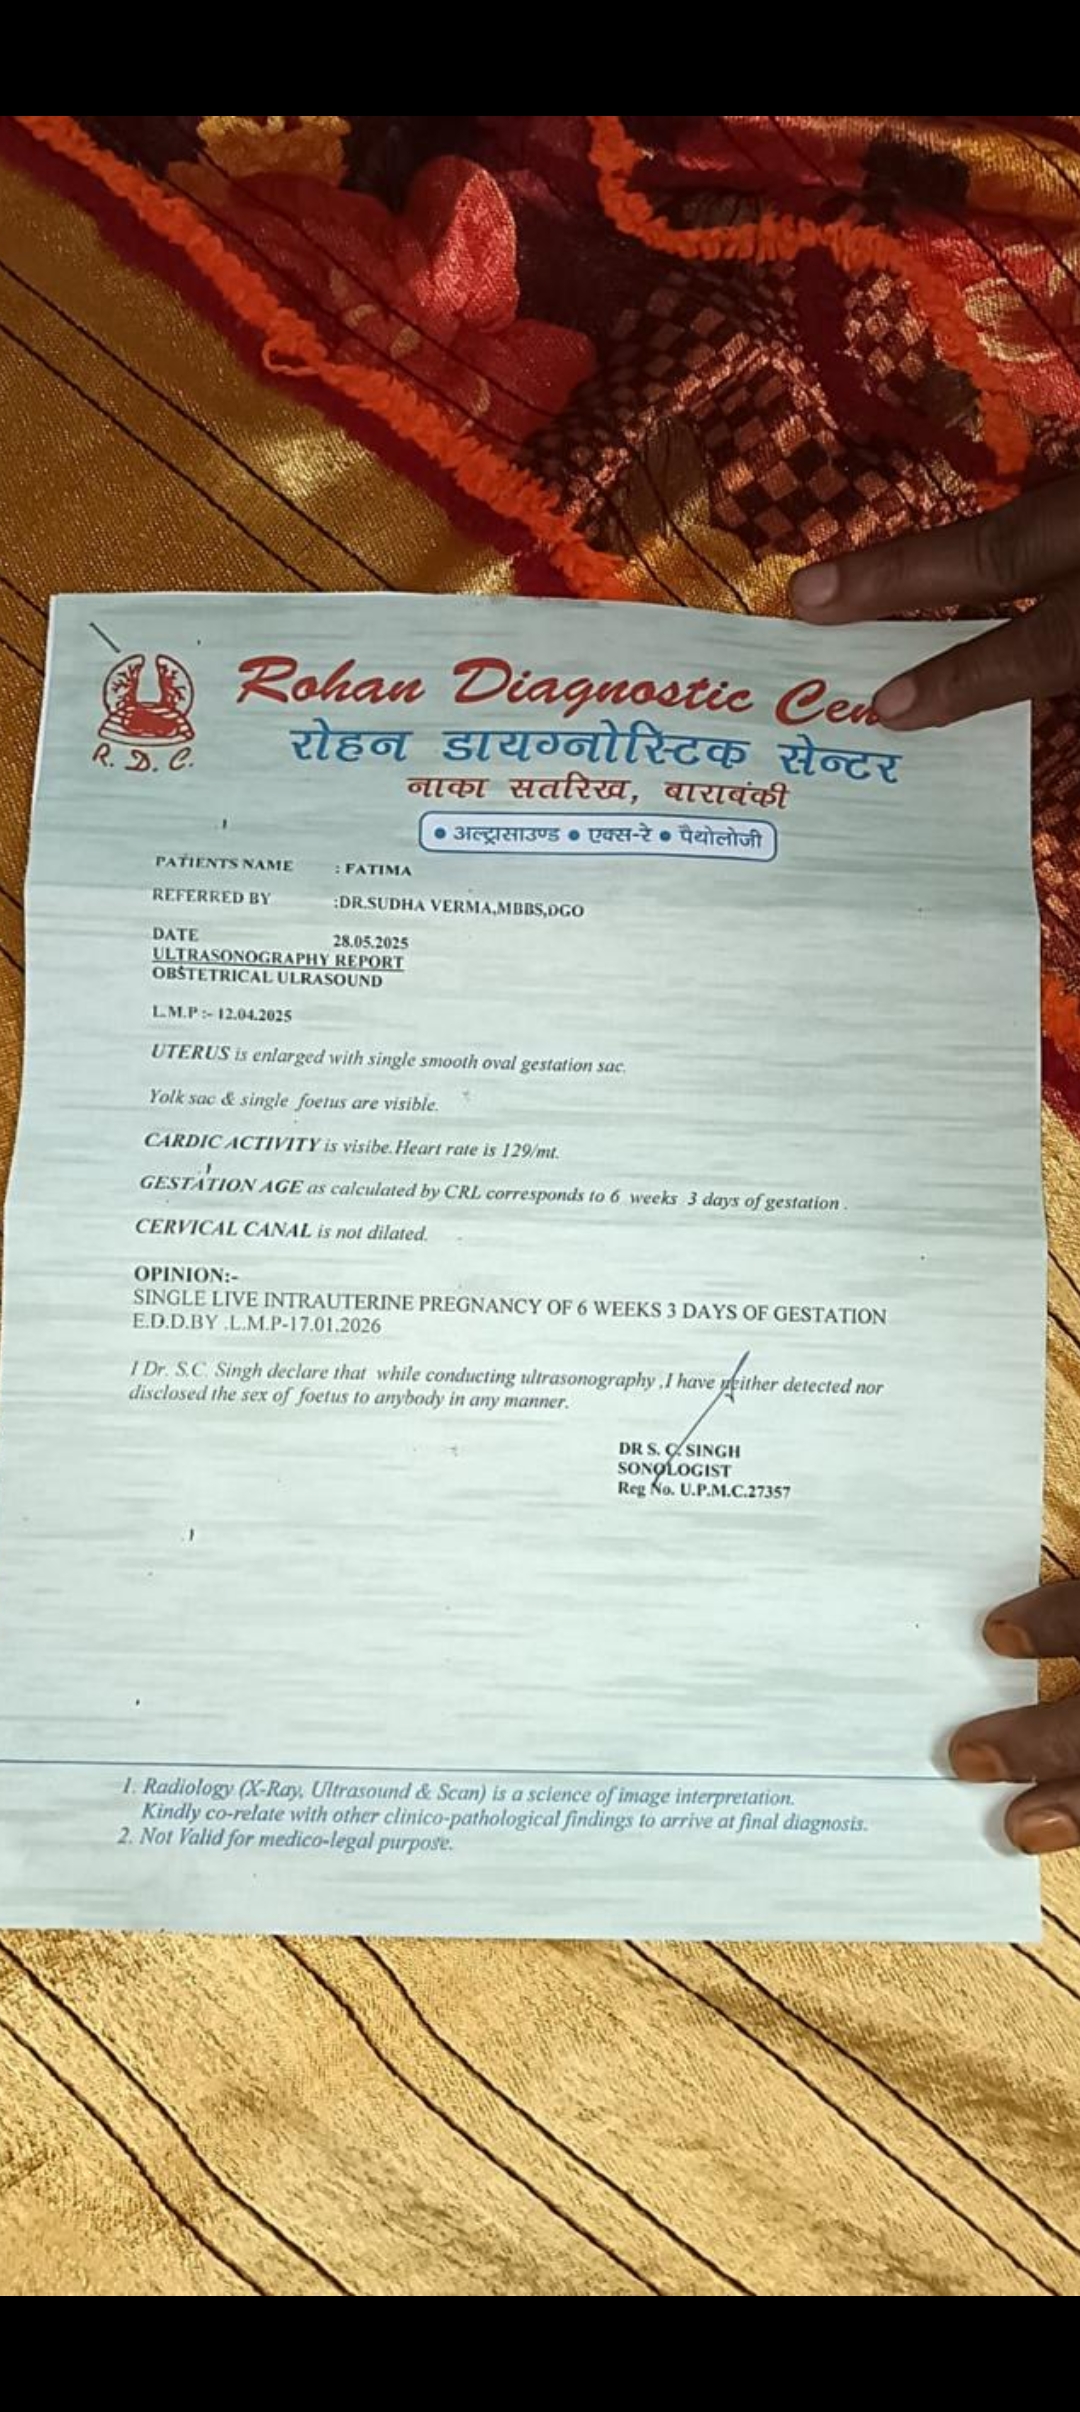 Rohan Diagnostic Cen
R. D. C.
रोहन डायग्नोस्टिक सेन्टर
नाका सतरिख, बाराबंकी
• अल्ट्रासाउण्ड • एक्स-रे • पैथोलोजी
PATIENTS NAME : FATIMA
REFERRED BY :DR.SUDHA VERMA,MBBS,DGO
DATE 28.05.2025
ULTRASONOGRAPHY REPORT
OBSTETRICAL ULRASOUND
L.M.P :- 12.04.2025
UTERUS is enlarged with single smooth oval gestation sac.
Yolk sac & single foetus are visible.
CARDIC ACTIVITY is visibe.Heart rate is 129/mt.
GESTATION AGE as calculated by CRL corresponds to 6 weeks 3 days of gestation .
CERVICAL CANAL is not dilated.
OPINION:-
SINGLE LIVE INTRAUTERINE PREGNANCY OF 6 WEEKS 3 DAYS OF GESTATION
E.D.D.BY .L.M.P-17.01.2026
I Dr. S.C. Singh declare that while conducting ultrasonography ,I have neither detected nor
disclosed the sex of foetus to anybody in any manner.
DR S. C. SINGH
SONOLOGIST
Reg No. U.P.M.C.27357
1. Radiology (X-Ray, Ultrasound & Scan) is a science of image interpretation.
Kindly co-relate with other clinico-pathological findings to arrive at final diagnosis.
2. Not Valid for medico-legal purpose.